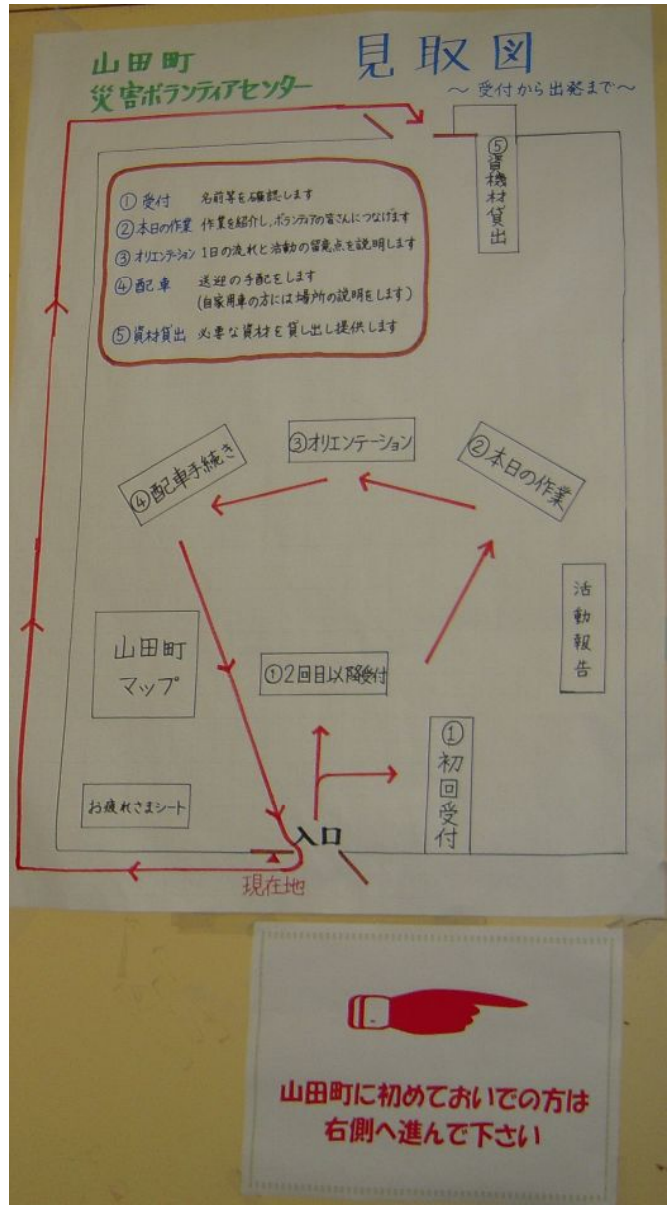 山田町
災害ボランティアセンター
見取図
～受付から出発まで～
①受付 名前等を確認します
②本日の作業 作業を紹介し、ボランティアの皆さんにつなげます
③オリエンテーション 1日の流れと活動の留意点を説明します
④配車 送迎の手配をします
(自家用車の方には場所の説明をします)
⑤資材貸出 必要な資材を貸し出し提供します
⑤資機材貸出
④配車手続き
③オリエンテーション
②本日の作業
活動報告
山田町
マップ
①2回目以降受付
①初回受付
お疲れさまシート
入口
現在地
山田町に初めておいでの方は
右側へ進んで下さい